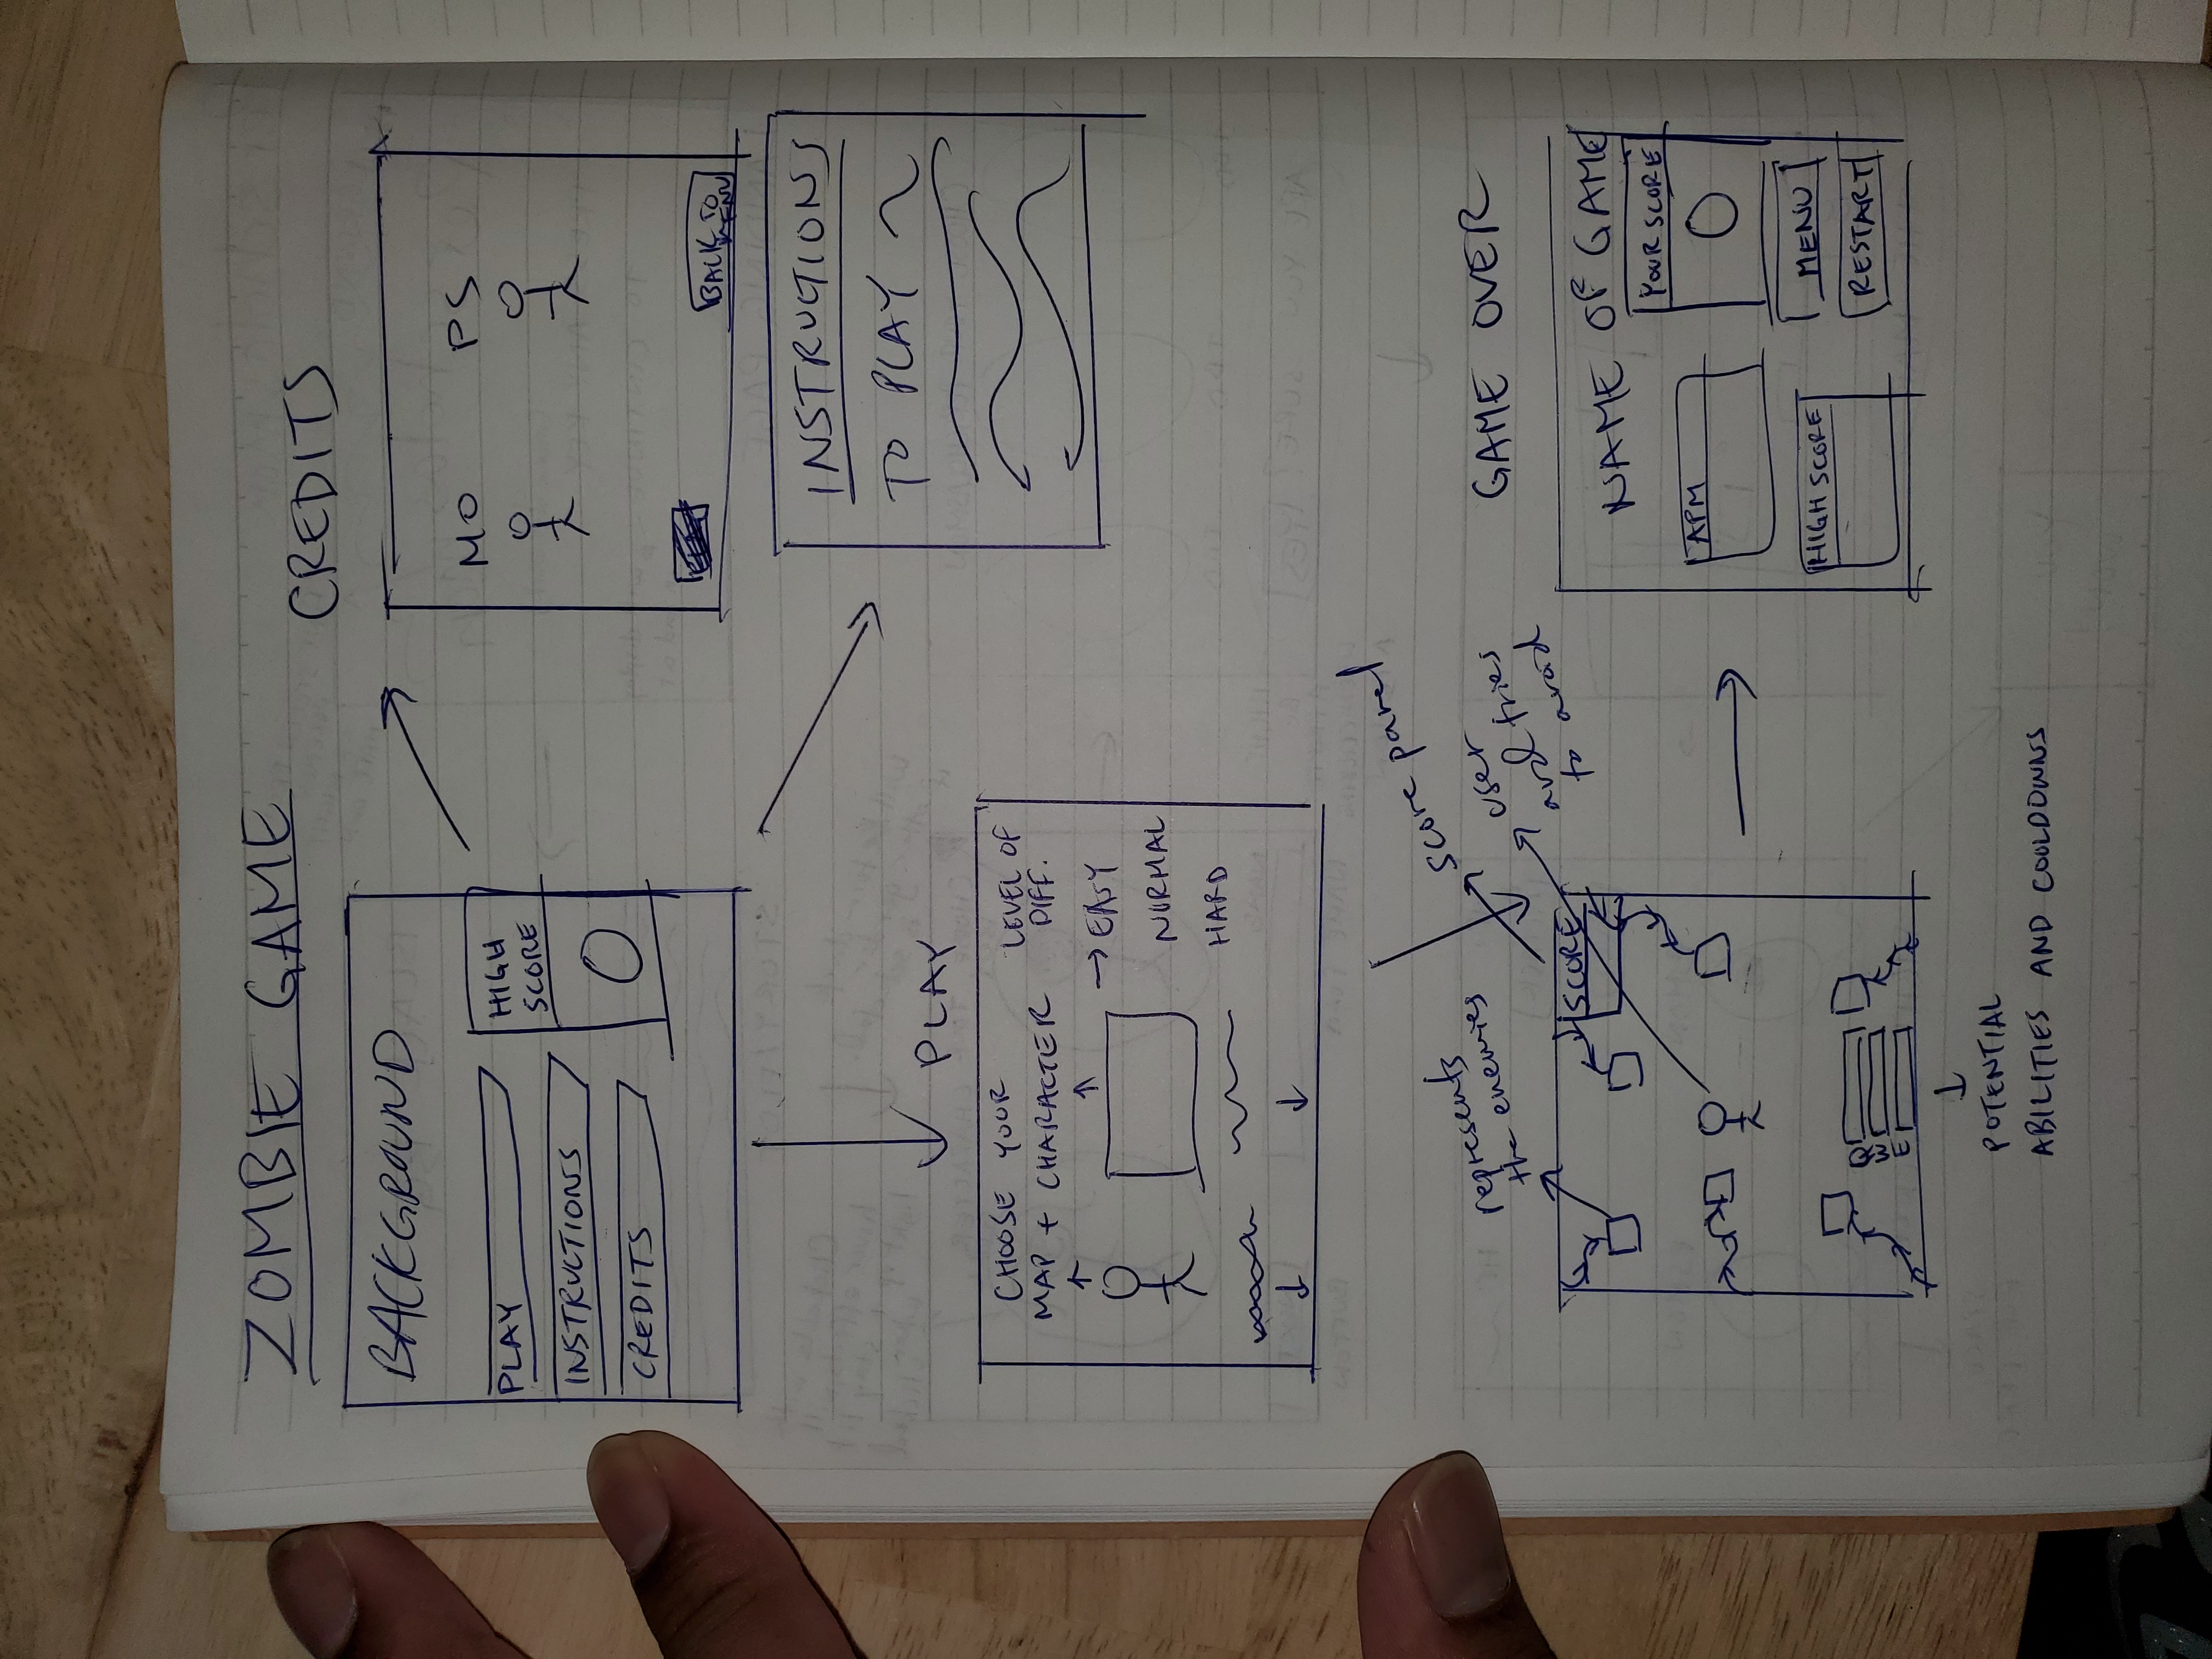 ZOMBIE GAME
BACKGROUND
PLAY
INSTRUCTIONS
CREDITS
HIGH
SCORE
CREDITS
MO
PS
BACK TO
MENU
INSTRUCTIONS
TO PLAY
PLAY
CHOOSE YOUR
MAP + CHARACTER
LEVEL OF
DIFF.
EASY
NORMAL
HARD
represents
the enemies
score panel
user
and tries
to avoid
SCORE
Q
W
E
POTENTIAL
ABILITIES AND COOLDOWNS
GAME OVER
NAME OF GAME
YOUR SCORE
APM
HIGH SCORE
MENU
RESTART